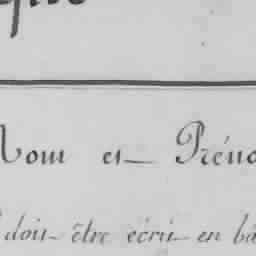 Nom et Préno
doit être écrit en ba